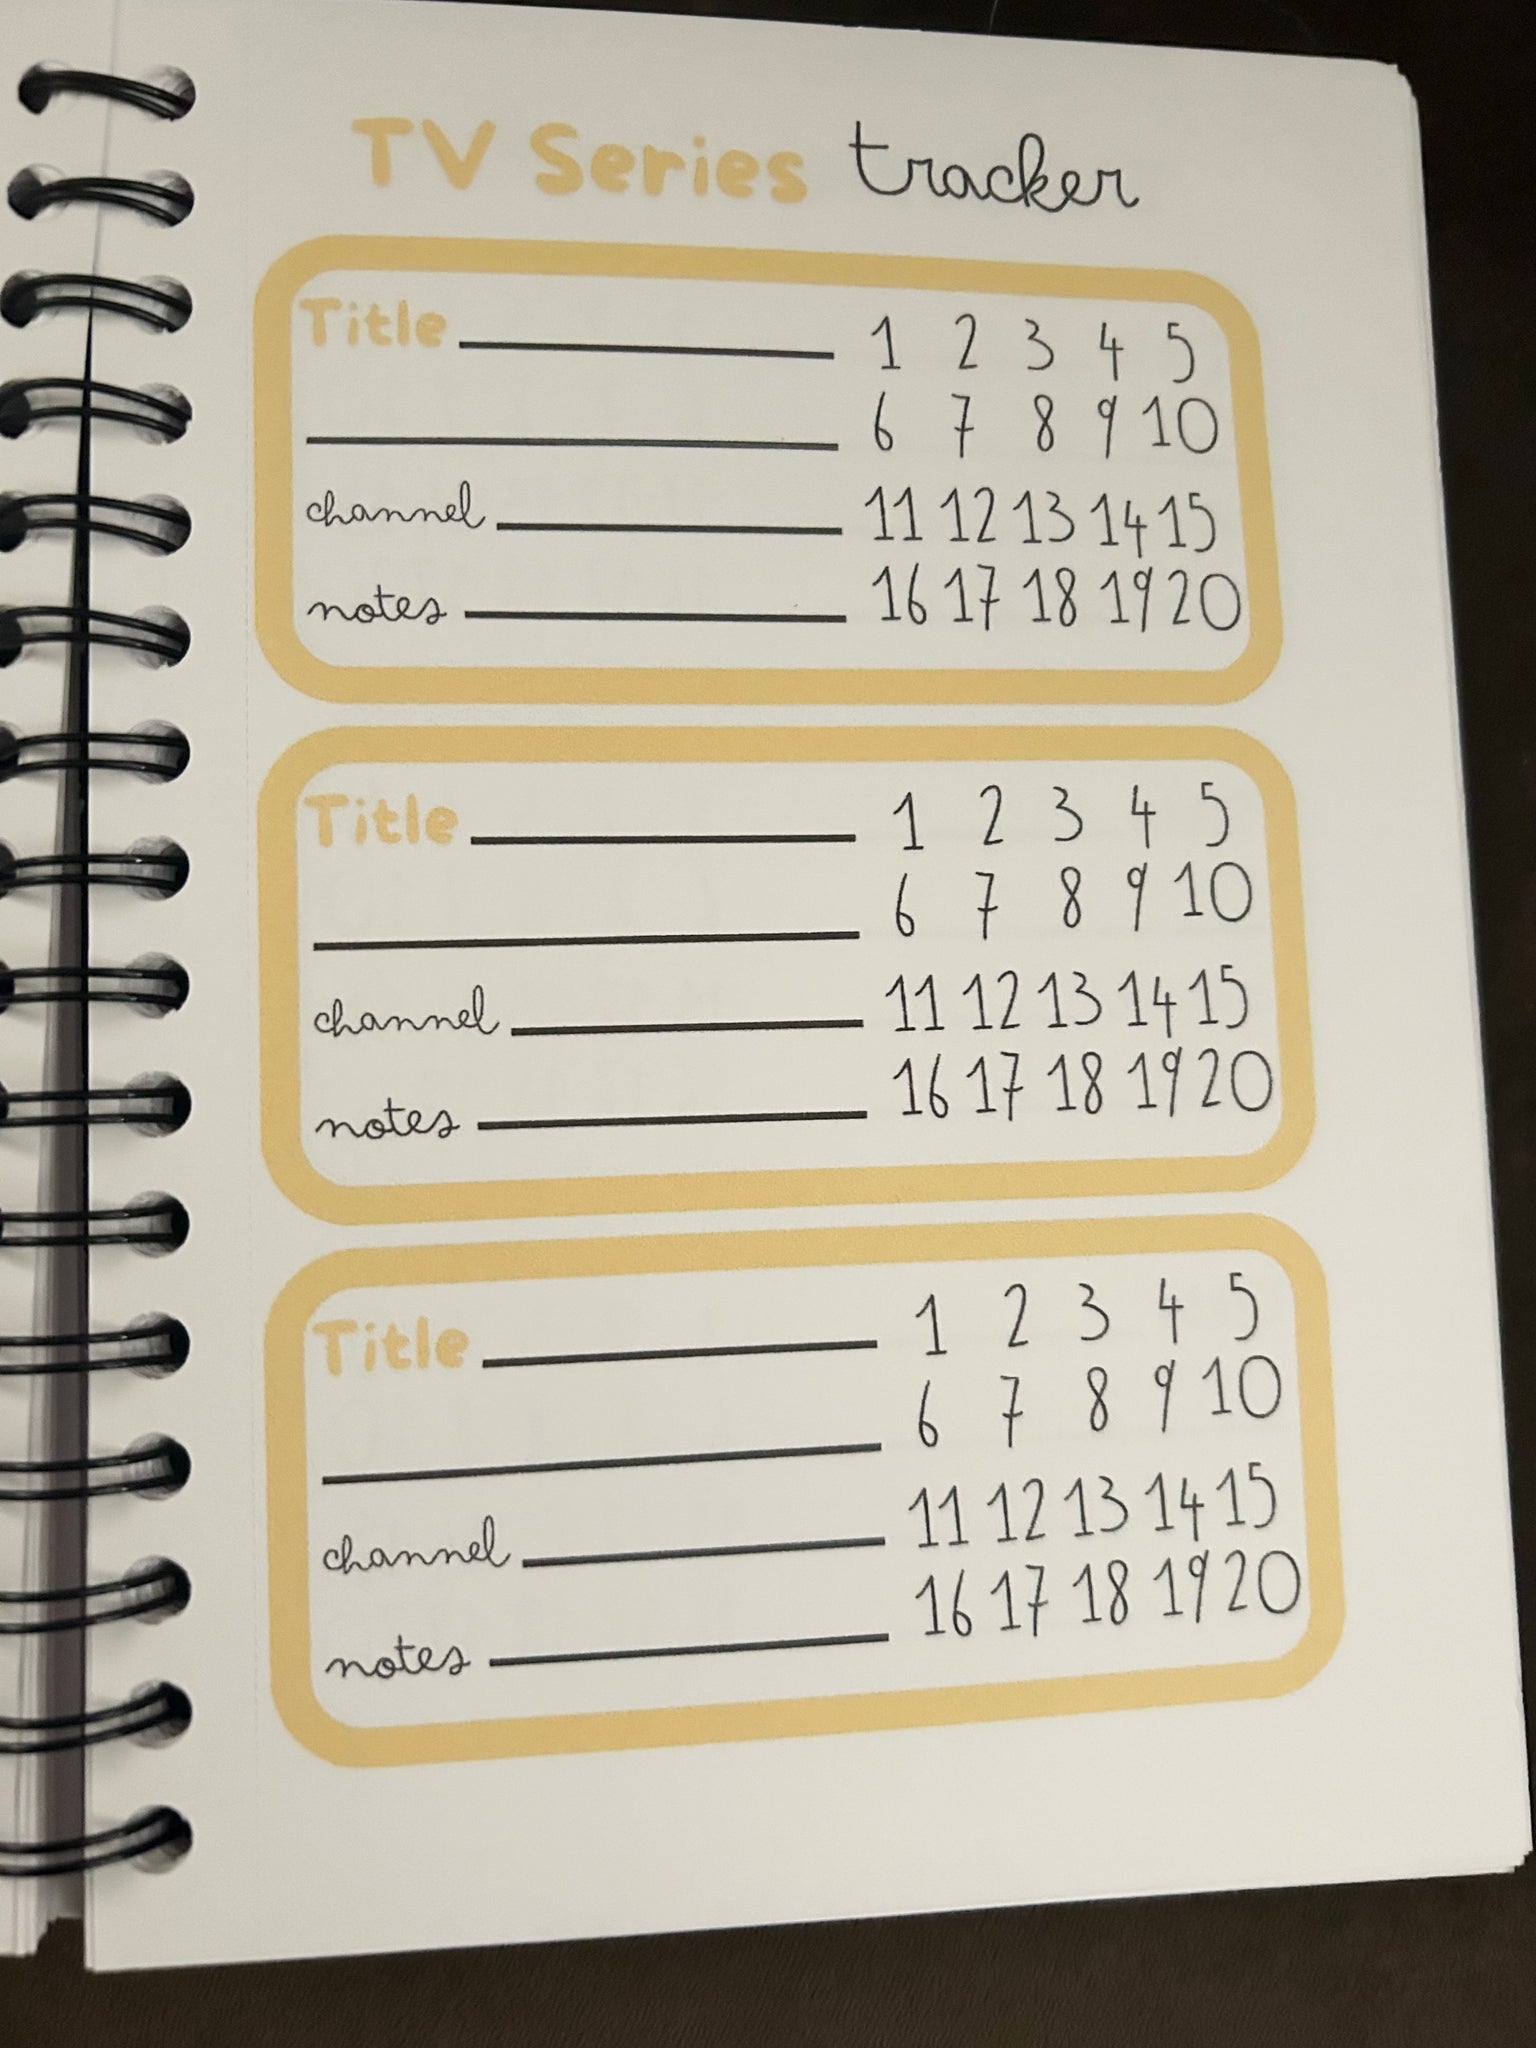 TV Series tracker
Title 1 2 3 4 5
6 7 8 9 10
channel 11 12 13 14 15
notes 16 17 18 19 20
Title 1 2 3 4 5
6 7 8 9 10
channel 11 12 13 14 15
notes 16 17 18 19 20
Title 1 2 3 4 5
6 7 8 9 10
channel 11 12 13 14 15
notes 16 17 18 19 20